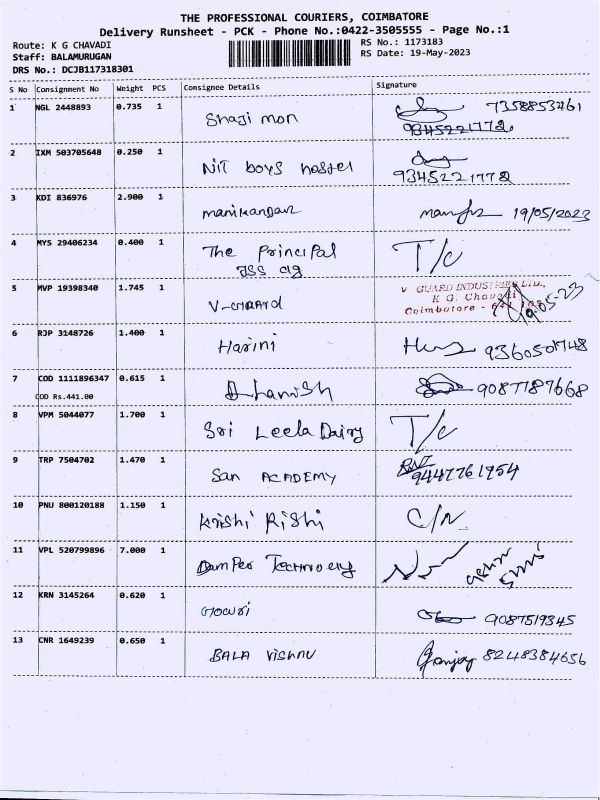 THE PROFESSIONAL COURIERS, COIMBATORE
Delivery Runsheet - PCK - Phone No.:0422-3505555 - Page No.:1
Route: K G CHAVADI
RS No.: 1173183
Staff: BALAMURUGAN
RS Date: 19-May-2023
DRS No.: DCJB117318301
S No Consignment No Weight PCS Consignee Details Signature
1 NGL 2448893 0.735 1 Shaji mon 7358853461
9345221772
2 IXM 503705648 0.250 1 NIT boys hostel
9345221772
3 KDI 836976 2.900 1 manikandan 19/05/2023
4 MYS 29406234 0.400 1 The Principal T/c
JSS clg
5 MVP 19398340 1.745 1 V-GUARD
V GUARD INDUSTRIES LTD.,
K G. Chavadi
Coimbatore - 641 105
6 RJP 3148726 1.400 1 Harini 9360501748
7 COD 1111896347 0.615 1 Dhanish 9087787668
COD Rs.441.00
8 VPM 5044077 1.700 1 Sri Leela Dairy T/c
9 TRP 7504702 1.470 1 San ACADEMY 9447761954
10 PNU 800120188 1.150 1 Krishi Rishi C/N
11 VPL 520799896 7.000 1 Damper
12 KRN 3145264 0.620 1 Gowri 9087519345
13 CNR 1649239 0.650 1 BALA VISHNU Sanjay 8248384656